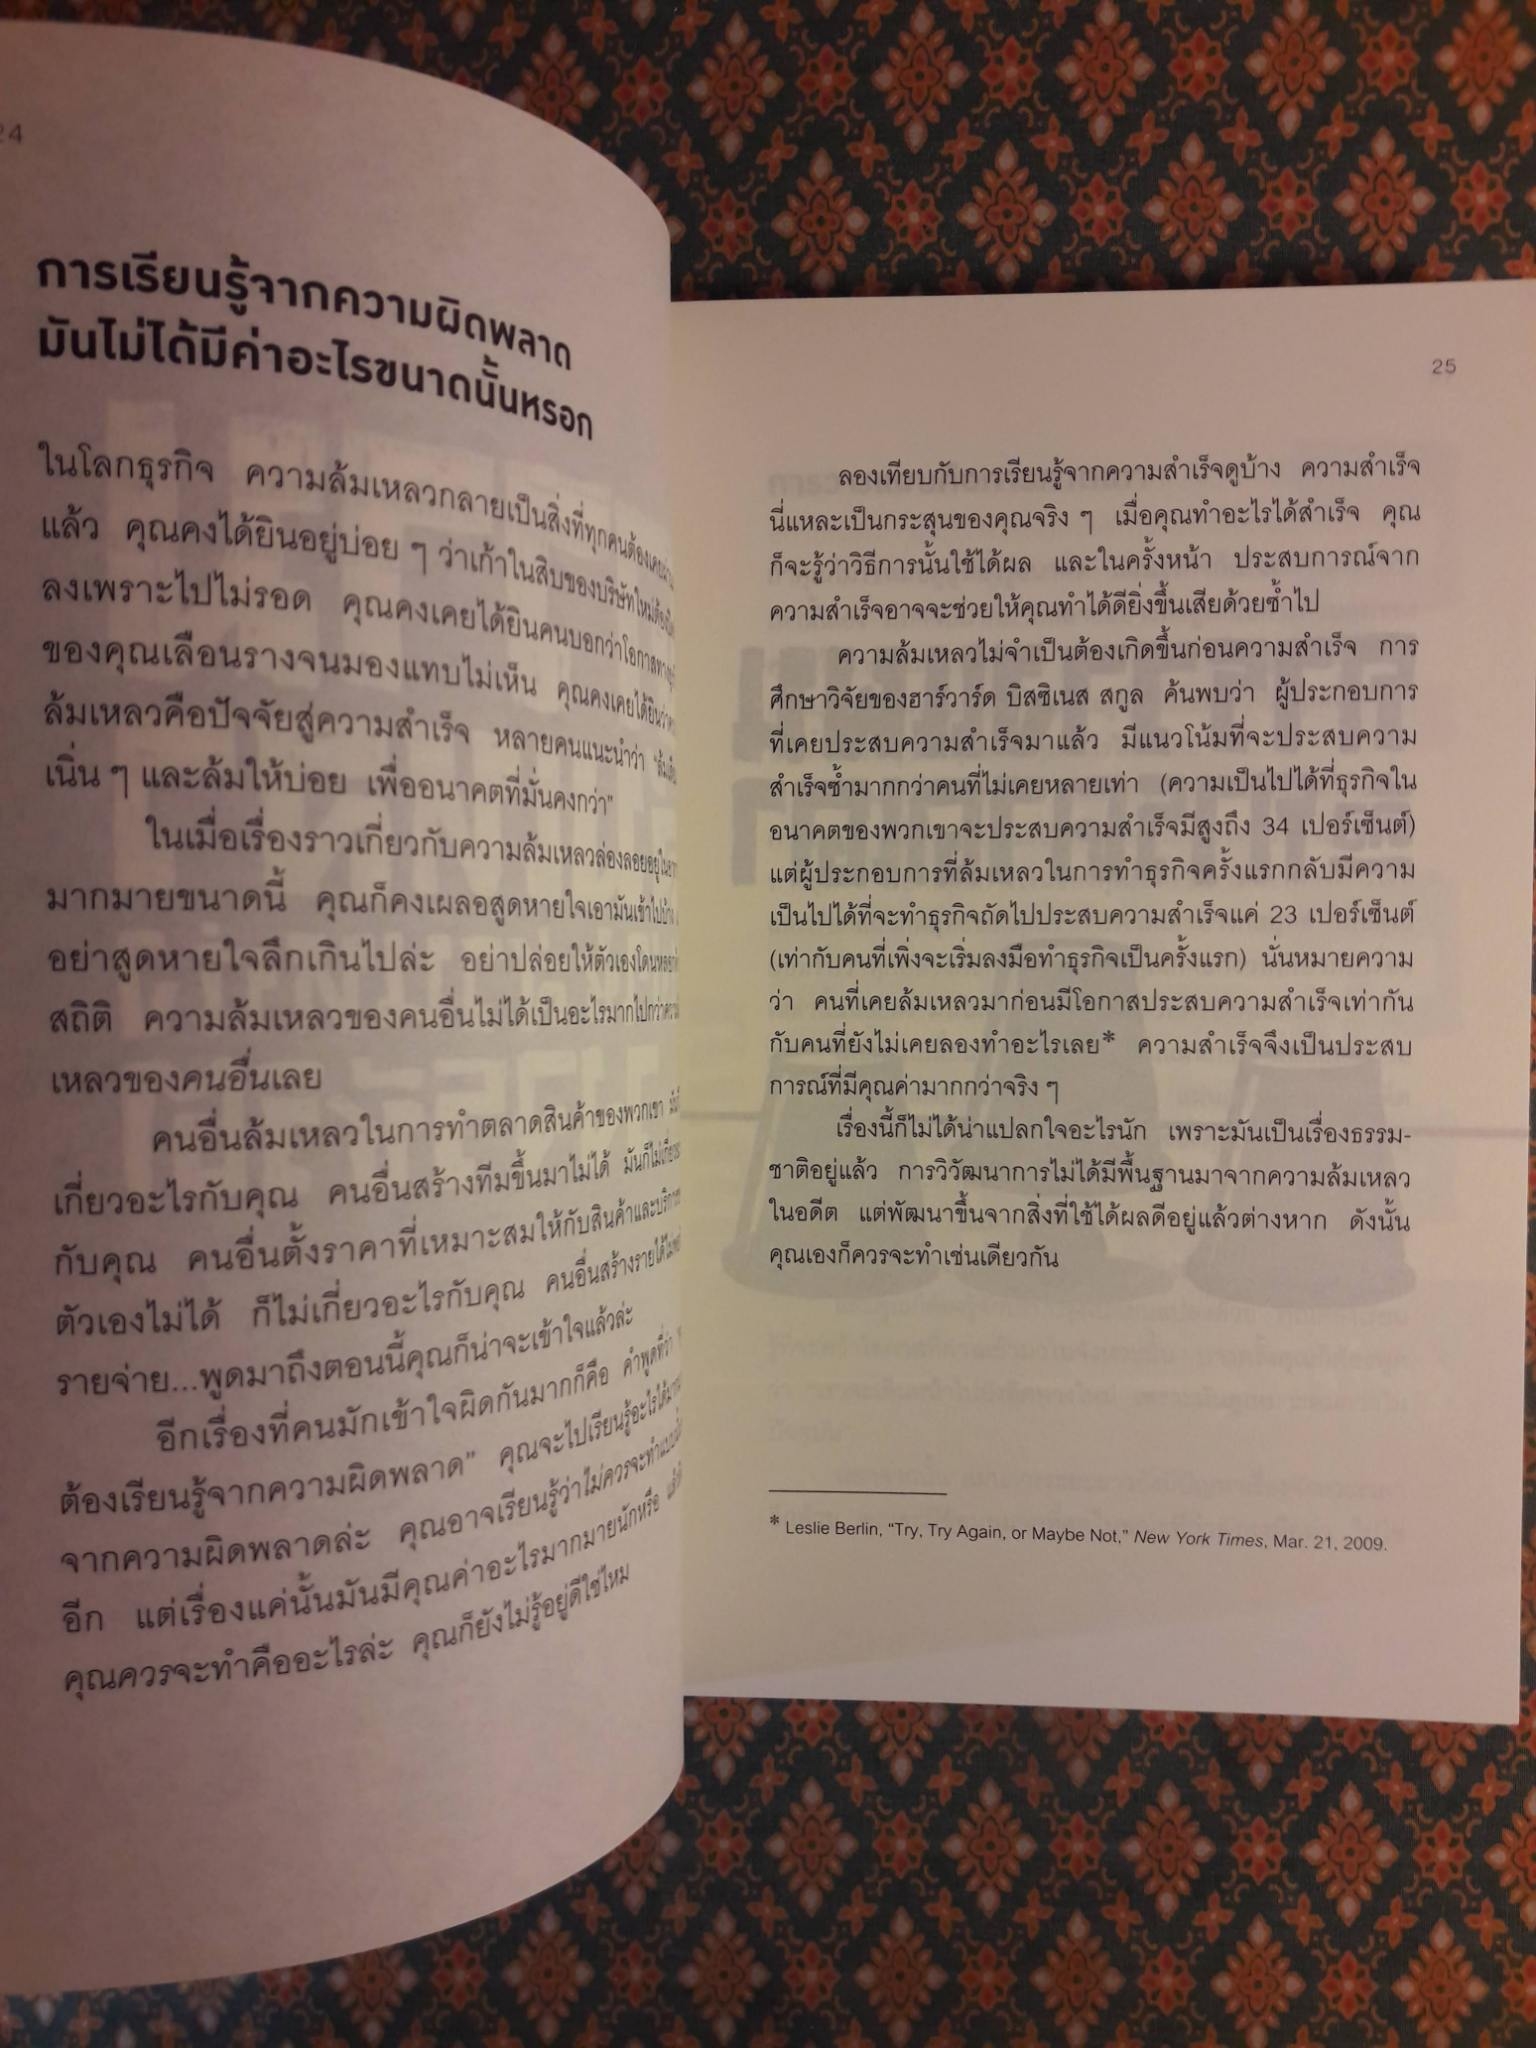 24
การเรียนรู้จากความผิดพลาด
มันไม่ได้มีค่าอะไรขนาดนั้นหรอก
ในโลกธุรกิจ ความล้มเหลวกลายเป็นสิ่งที่ทุกคนต้องเคยผ่าน
แล้ว คุณคงได้ยินอยู่บ่อย ๆ ว่าเก้าในสิบของบริษัทใหม่ต้อง
ลงเพราะไปไม่รอด คุณคงเคยได้ยินคนบอกว่าโอกาสทาง
ของคุณเลือนรางจนมองแทบไม่เห็น คุณคงเคยได้ยินว่า
ล้มเหลวคือปัจจัยสู่ความสำเร็จ หลายคนแนะนำว่า
เนิ่น ๆ และล้มให้บ่อย เพื่ออนาคตที่มั่นคงกว่า"
ในเมื่อเรื่องราวเกี่ยวกับความล้มเหลวล่องลอยอยู่ใน
มากมายขนาดนี้ คุณก็คงเผลอสูดหายใจเอามันเข้าไปบ้าง
อย่าสูดหายใจลึกเกินไปล่ะ อย่าปล่อยให้ตัวเองโดน
สถิติ ความล้มเหลวของคนอื่นไม่ได้เป็นอะไรมากไปกว่า
เหลวของคนอื่นเลย
คนอื่นล้มเหลวในการทำตลาดสินค้าของพวกเขา
เกี่ยวอะไรกับคุณ คนอื่นสร้างทีมขึ้นมาไม่ได้ มันก็ไม่เกี่ยว
กับคุณ คนอื่นตั้งราคาที่เหมาะสมให้กับสินค้าและบริการ
ตัวเองไม่ได้ ก็ไม่เกี่ยวอะไรกับคุณ คนอื่นสร้างรายได้
รายจ่าย...พูดมาถึงตอนนี้คุณก็น่าจะเข้าใจแล้วล่ะ
อีกเรื่องที่คนมักเข้าใจผิดกันมากก็คือ คำพูดที่ว่า
ต้องเรียนรู้จากความผิดพลาด" คุณจะไปเรียนรู้อะไรได้
จากความผิดพลาดล่ะ คุณอาจเรียนรู้ว่าไม่ควรจะทำแบบ
อีก แต่เรื่องแค่นั้นมันมีคุณค่าอะไรมากมายนักหรือ
คุณควรจะทำคืออะไรล่ะ คุณก็ยังไม่รู้อยู่ดีใช่ไหม
25
ลองเทียบกับการเรียนรู้จากความสำเร็จดูบ้าง ความสำเร็จ
นี่แหละเป็นกระสุนของคุณจริง ๆ เมื่อคุณทำอะไรได้สำเร็จ คุณ
ก็จะรู้ว่าวิธีการนั้นใช้ได้ผล และในครั้งหน้า ประสบการณ์จาก
ความสำเร็จอาจจะช่วยให้คุณทำได้ดียิ่งขึ้นเสียด้วยซ้ำไป
ความล้มเหลวไม่จำเป็นต้องเกิดขึ้นก่อนความสำเร็จ การ
ศึกษาวิจัยของฮาร์วาร์ด บิสซิเนส สกูล ค้นพบว่า ผู้ประกอบการ
ที่เคยประสบความสำเร็จมาแล้ว มีแนวโน้มที่จะประสบความ
สำเร็จซ้ำมากกว่าคนที่ไม่เคยหลายเท่า (ความเป็นไปได้ที่ธุรกิจใน
อนาคตของพวกเขาจะประสบความสำเร็จมีสูงถึง 34 เปอร์เซ็นต์)
แต่ผู้ประกอบการที่ล้มเหลวในการทำธุรกิจครั้งแรกกลับมีความ
เป็นไปได้ที่จะทำธุรกิจถัดไปประสบความสำเร็จแค่ 23 เปอร์เซ็นต์
(เท่ากับคนที่เพิ่งจะเริ่มลงมือทำธุรกิจเป็นครั้งแรก) นั่นหมายความ
ว่า คนที่เคยล้มเหลวมาก่อนมีโอกาสประสบความสำเร็จเท่ากัน
กับคนที่ยังไม่เคยลองทำอะไรเลย* ความสำเร็จจึงเป็นประสบ
การณ์ที่มีคุณค่ามากกว่าจริง ๆ
เรื่องนี้ก็ไม่ได้น่าแปลกใจอะไรนัก เพราะมันเป็นเรื่องธรรม-
ชาติอยู่แล้ว การวิวัฒนาการไม่ได้มีพื้นฐานมาจากความล้มเหลว
ในอดีต แต่พัฒนาขึ้นจากสิ่งที่ใช้ได้ผลดีอยู่แล้วต่างหาก ดังนั้น
คุณเองก็ควรจะทำเช่นเดียวกัน
* Leslie Berlin, "Try, Try Again, or Maybe Not," New York Times, Mar. 21, 2009.